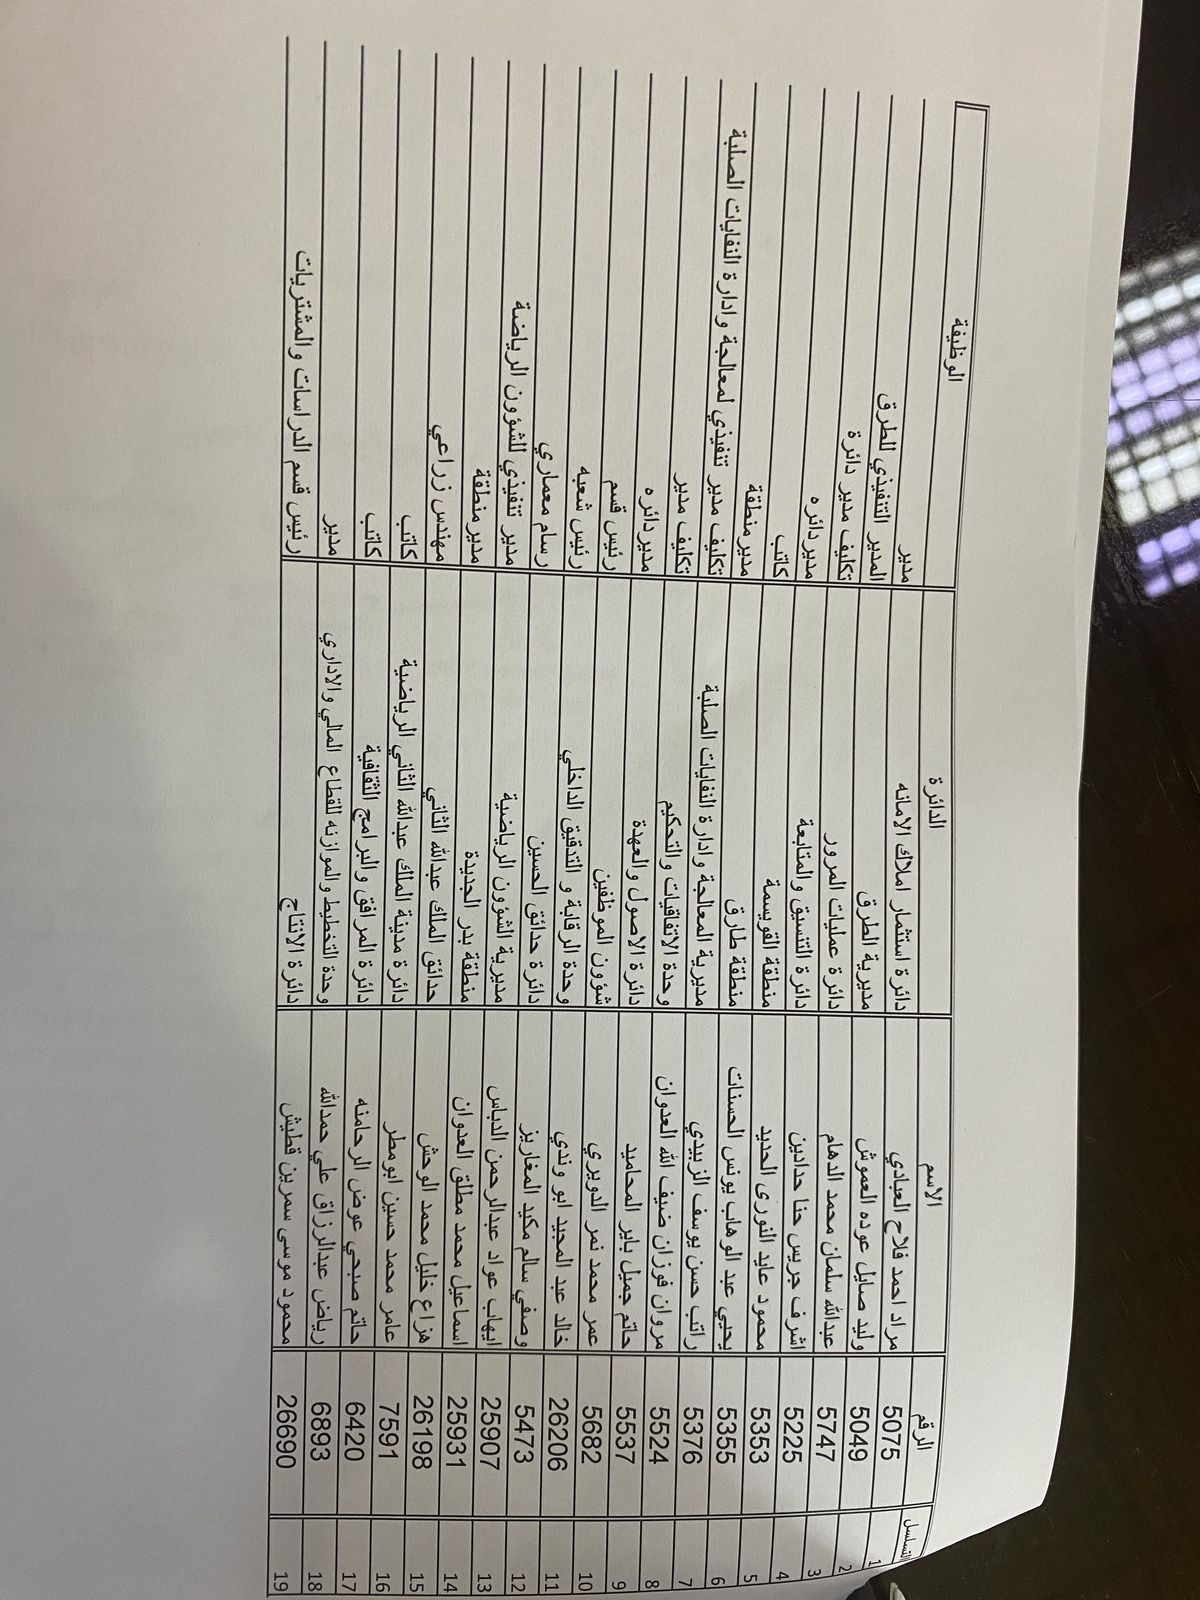 التسلسل الرقم الاسم الدائرة الوظيفة
1 5075 مراد احمد فلاح العبادي دائرة استثمار املاك الامانه مدير
2 5049 وليد صايل عوده العموش مديرية الطرق المدير التنفيذي للطرق
3 5747 عبدالله سلمان محمد الدهام دائرة عمليات المرور تكليف مدير دائرة
4 5225 اشرف جريس حنا حدادين دائرة التنسيق والمتابعة مديردائره
5 5353 محمود عايد النورى الحديد منطقة القويسمة كاتب
6 5355 يحيي عبد الوهاب يونس الحسنات منطقة طارق مدير منطقة
7 5376 راتب حسن يوسف الزبيدي مديرية المعالجة وادارة النفايات الصلبة تكليف مدير تنفيذي لمعالجة وادارة النفايات الصلبة
8 5524 مروان فوزان ضيف الله العدوان وحدة الاتفاقيات والتحكيم تكليف مدير
9 5537 حاتم جميل باير المحاميد دائرة الاصول والعهدة مديردائره
10 5682 عمر محمد نمر الدويري شؤون الموظفين رئيس قسم
11 26206 خالد عبد المجيد ابو وندي وحدة الرقابة و التدقيق الداخلي رئيس شعبه
12 5473 وصفي سالم مكيد المغاريز دائرة حدائق الحسين رسام معماري
13 25907 ايهاب عواد عبدالرحمن الدباس مديرية الشؤون الرياضية مدير تنفيذي للشؤون الرياضة
14 25931 اسماعيل محمد مطلق العدوان منطقة بدر الجديدة مدير منطقة
15 26198 هزاع خليل محمد الوحش حدائق الملك عبدالله الثاني مهندس زراعي
16 7591 عامر محمد حسين ابومطر دائرة مدينة الملك عبدالله الثاني الرياضية كاتب
17 6420 حاتم صبحي عوض الرحامنه دائرة المرافق والبرامج الثقافية كاتب
18 6893 رياض عبدالرزاق علي حمدالله وحدة التخطيط والموازنه للقطاع المالي والاداري مدير
19 26690 محمود موسى سمرين قطيش دائرة الانتاج رئيس قسم الدراسات والمشتريات